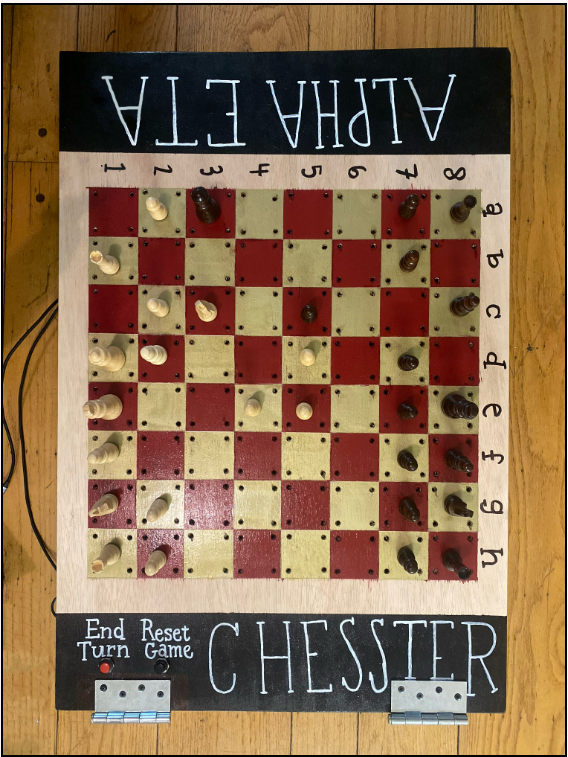 ALPHA ETA
1 2 3 4 5 6 7 8
a
b
c
d
e
f
g
h
End Reset
Turn Game
CHESSTER